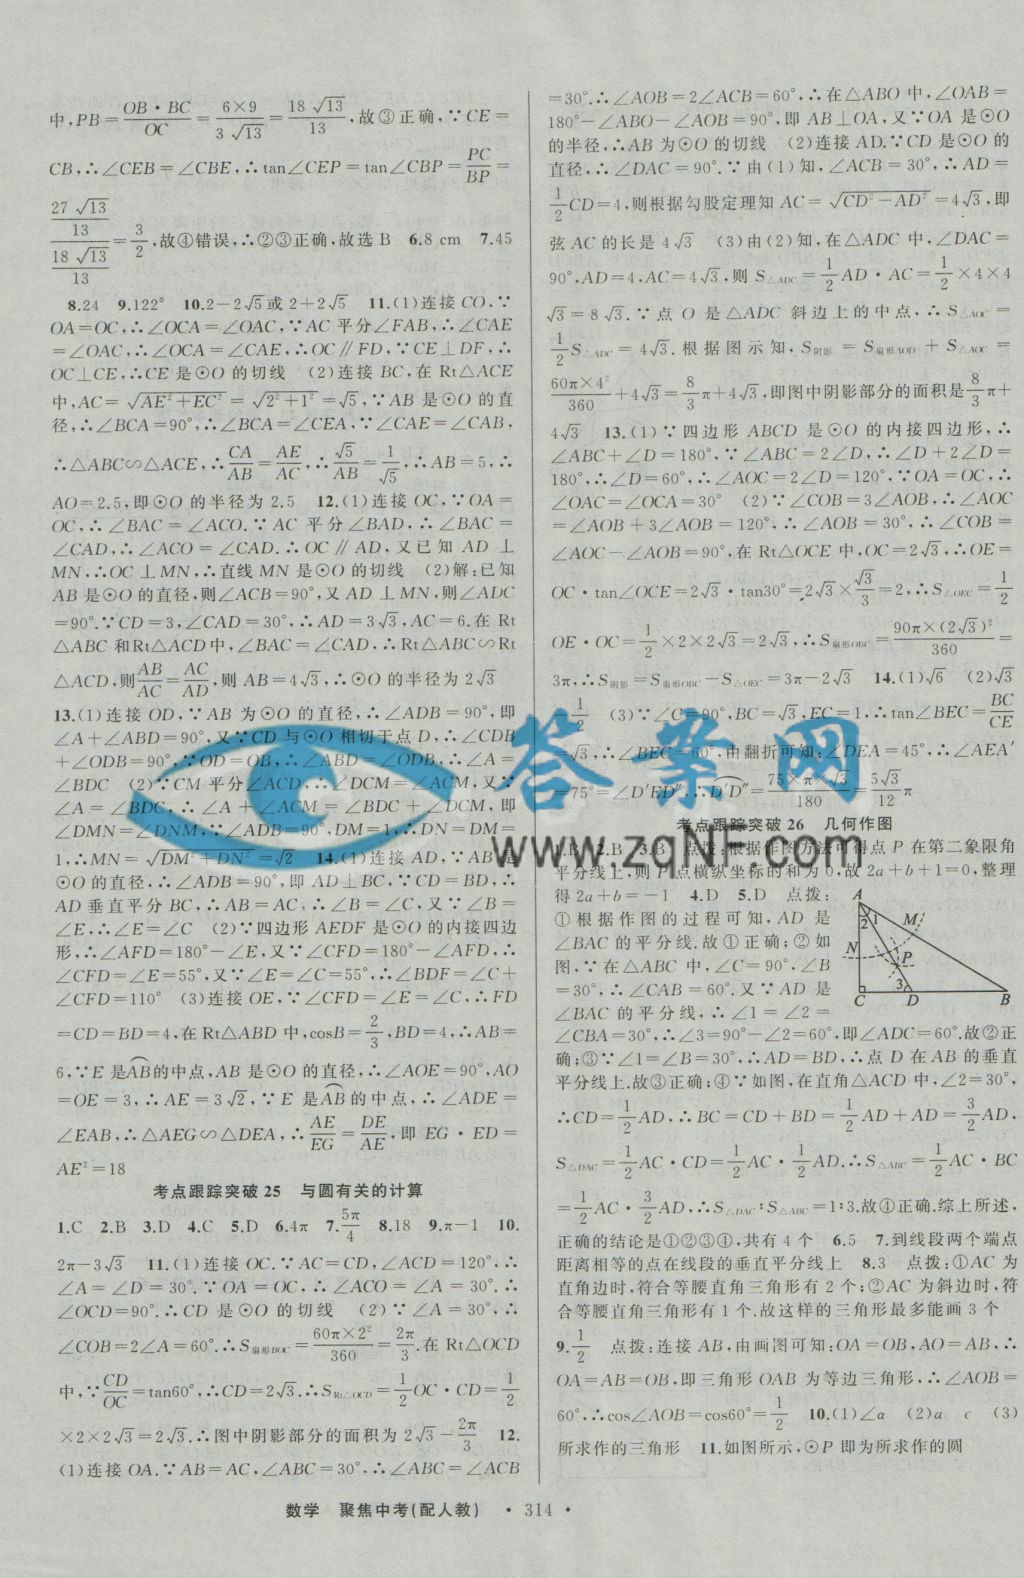 中,PB=OB·BC/OC=6×9/3√13=18√13/13,故③正确,∵CE=
CB,∴∠CEB=∠CBE,∴tan∠CEP=tan∠CBP=PC/BP=
(27√13/13)/(18√13/13)=3/2,故④错误,∴②③正确,故选 B 6.8 cm 7.45
8.24 9.122° 10.2-2√5或 2+2√5 11.(1)连接 CO,∵
OA=OC,∴∠OCA=∠OAC,∵AC 平分∠FAB,∴∠CAE
=∠OAC,∴∠OCA=∠CAE,∴OC∥FD,∵CE⊥DF,∴
OC⊥CE,∴CE 是⊙O 的切线 (2)连接 BC,在 Rt△ACE
中,AC=√AE²+EC²=√2²+1²=√5,∵AB 是⊙O 的直
径,∴∠BCA=90°,∴∠BCA=∠CEA,∵∠CAE=∠CAB,
∴△ABC∽△ACE,∴CA/AB=AE/AC,∴√5/AB=1/√5,∴AB=5,∴
AO=2.5,即⊙O 的半径为 2.5 12.(1)连接 OC,∵OA=
OC,∴∠BAC=∠ACO.∵AC 平分∠BAD,∴∠BAC=
∠CAD,∴∠ACO=∠CAD.∴OC∥AD,又已知 AD⊥
MN,∴OC⊥MN,∴直线MN是⊙O 的切线 (2)解:已知
AB是⊙O的直径,则∠ACB=90°,又 AD⊥MN,则∠ADC
=90°.∵CD=3,∠CAD=30°,∴AD=3√3,AC=6.在 Rt
△ABC 和Rt△ACD中,∠BAC=∠CAD,∴Rt△ABC∽Rt
△ACD,则AB/AC=AC/AD,则 AB=4√3,∴⊙O的半径为 2√3
13.(1)连接 OD,∵AB 为⊙O 的直径,∴∠ADB=90°,即
∠A+∠ABD=90°,又∵CD 与⊙O 相切于点 D,∴∠CDB
+∠ODB=90°,∵OD=OB,∴∠ABD=∠ODB,∴∠A=
∠BDC (2)∵CM 平分∠ACD,∴∠DCM=∠ACM,又∵
∠A=∠BDC,∴∠A+∠ACM=∠BDC+∠DCM,即
∠DMN=∠DNM,∵∠ADB=90°,DM=1,∴DN=DM=
1,∴MN=√DM²+DN²=√2 14.(1)连接AD,∵AB是直
径,∴∠ADB=90°,即 AD⊥BC,∵CD=BD,∴
AD垂直平分 BC,∴AB=AC,∴∠B=∠C,又∵∠B=
∠E,∴∠E=∠C (2)∵四边形 AEDF 是⊙O的内接四边
形,∴∠AFD=180°-∠E,又∵∠CFD=180°-∠AFD,∴
∠CFD=∠E=55°,又∵∠E=∠C=55°,∴∠BDF=∠C+
∠CFD=110° (3)连接 OE,∵∠CFD=∠E=∠C,∴FD
=CD=BD=4,在Rt△ABD 中,cosB=2/3,BD=4,∴AB=
6,∵E 是AB的中点,AB 是⊙O 的直径,∴∠AOE=90°,AO
=OE=3,∴AE=3√2,∵E 是AB的中点,∴∠ADE=
∠EAB,∴△AEG∽△DEA,∴AE/EG=DE/AE,即 EG·ED=
AE²=18
考点跟踪突破 25 与圆有关的计算
1.C 2.B 3.D 4.C 5.D 6.4π 7.5π/4 8.18 9.π-1 10.
2π-3√3 11.(1)连接 OC.∵AC=CD,∠ACD=120°,∴
∠A=∠D=30°.∵OA=OC,∴∠ACO=∠A=30°.∴
∠OCD=90°.∴CD 是⊙O 的切线 (2)∵∠A=30°,∴
∠COB=2∠A=60°.∴S扇形BOC=60π×2²/360=2π/3.在 Rt△OCD
中,∵CD/OC=tan60°,∴CD=2√3.∴SRt△OCD=1/2OC·CD=1/2
×2×2√3=2√3.∴图中阴影部分的面积为 2√3-2π/3 12.
(1)连接 OA.∵AB=AC,∠ABC=30°,∴∠ABC=∠ACB
=30°.∴∠AOB=2∠ACB=60°,∴在△ABO 中,∠OAB=
180°-∠ABO-∠AOB=90°,即 AB⊥OA,又∵OA 是⊙O
的半径,∴AB 为⊙O 的切线 (2)连接 AD.∵CD 是⊙O 的
直径,∴∠DAC=90°.∵由(1)知,∠ACB=30°,∴AD=
1/2CD=4,则根据勾股定理知 AC=√CD²-AD²=4√3,即
弦 AC 的长是 4√3 (3)由(2)知,在△ADC 中,∠DAC=
90°,AD=4,AC=4√3,则 S△ADC=1/2AD·AC=1/2×4×4
√3=8√3.∵点 O 是△ADC 斜边上的中点,∴S△AOC=
1/2S△ADC=4√3.根据图示知,S阴影=S扇形AOD+S△AOC=
60π×4²/360+4√3=8/3π+4√3,即图中阴影部分的面积是8/3π+
4√3 13.(1)∵四边形 ABCD 是⊙O 的内接四边形,∴
∠ABC+∠D=180°,∵∠ABC=2∠D,∴∠D+2∠D=
180°,∴∠D=60°,∴∠AOC=2∠D=120°,∵OA=OC,∴
∠OAC=∠OCA=30° (2)∵∠COB=3∠AOB,∴∠AOC
=∠AOB+3∠AOB=120°,∴∠AOB=30°,∴∠COB=
∠AOC-∠AOB=90°,在Rt△OCE 中,OC=2√3,∴OE=
OC·tan∠OCE=2√3·tan30°=2√3×√3/3=2,∴S△OEC=1/2
OE·OC=1/2×2×2√3=2√3,∴S扇形OBC=90π×(2√3)²/360=
3π,∴S阴影=S扇形OBC-S△OEC=3π-2√3 14.(1)√6 (2)√3
1/2 (3)∵∠C=90°,BC=√3,EC=1,∴tan∠BEC=BC/CE
=√3,∴∠BEC=60°,由翻折可知:∠DEA=45°,∴∠AEA′
=75°=∠D′ED″,∴D′D″=75×π×√3/180=5√3/12π
考点跟踪突破 26 几何作图
1.B 2.B 3.B 点拨:根据作图方法可得点 P 在第二象限角
平分线上,则 P 点横纵坐标的和为 0,故 2a+b+1=0,整理
得 2a+b=-1 4.D 5.D 点拨:
①根据作图的过程可知,AD 是
∠BAC的平分线.故①正确;②如
图,∵在△ABC 中,∠C=90°,∠B
=30°,∴∠CAB=60°.又∵AD 是
∠BAC 的平分线,∴∠1=∠2=
∠CBA=30°,∴∠3=90°-∠2=60°,即∠ADC=60°.故②正
确;③∵∠1=∠B=30°,∴AD=BD,∴点 D 在 AB 的垂直
平分线上.故③正确;④∵如图,在直角△ACD 中,∠2=30°,
∴CD=1/2AD,∴BC=CD+BD=1/2AD+AD=3/2AD,
S△DAC=1/2AC·CD=1/4AC·AD.∴S△ABC=1/2AC·BC
=1/2AC·3/2AD,∴S△DAC∶S△ABC=1∶3.故④正确.综上所述,
正确的结论是①②③④,共有 4 个 6.5 7.到线段两个端点
距离相等的点在线段的垂直平分线上 8.3 点拨:①AC 为
直角边时,符合等腰直角三角形有 2 个;②AC 为斜边时,符
合等腰直角三角形有 1 个.故这样的三角形最多能画 3 个
9.1/2 点拨:连接 AB,由画图可知:OA=OB,AO=AB,∴
OA=AB=OB,即三角形 OAB 为等边三角形,∴∠AOB=
60°,∴cos∠AOB=cos60°=1/2 10.(1)∠a (2)a c (3)
所求作的三角形 11.如图所示,⊙P 即为所求作的圆
A
1
2
M
N
P
3
C D B
答案网
www.zqNF.com
数学 聚焦中考(配人教) · 314 ·